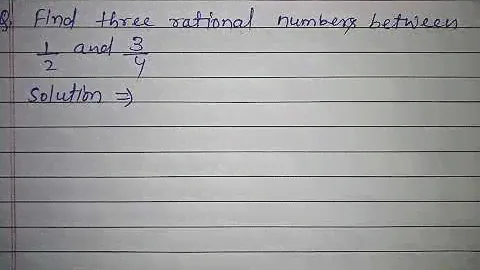 Q. Find three rational numbers between
1/2 and 3/4
Solution ⇒